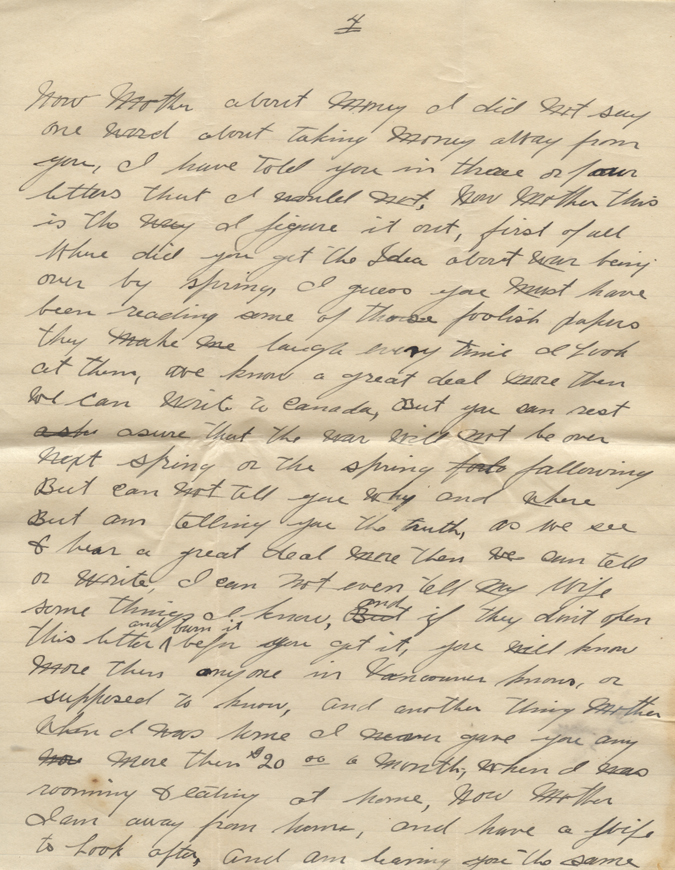 4
Now Mother about Money I did Not say
one word about taking Money away from
you, I have told you in three or four
letters that I would not, Now Mother this
is the way I figure it out, first of all
Where did you get the Idea about war being
over by spring, I guess you Must have
been reading some of those foolish papers
they Make me laugh every time I Look
at them, we know a great deal more then
we can Write to Canada, But you can rest
asure that the war will not be over
Next spring or the spring fallowing
But can Not tell you why and where
But am telling you the truth, as we see
& hear a great deal more then we can tell
or Write, I can Not even tell My Wife
some things I know, and if they don't open
this letter and burn it befor you get it, you will know
More then anyone in Vancouver knows, or
supposed to know, And another thing Mother
When I was home I never gave you any
more then $20 00 a Month, when I was
rooming & eating at home, Now Mother
I am away from home, and have a Wife
to Look after, And am leaving you the same